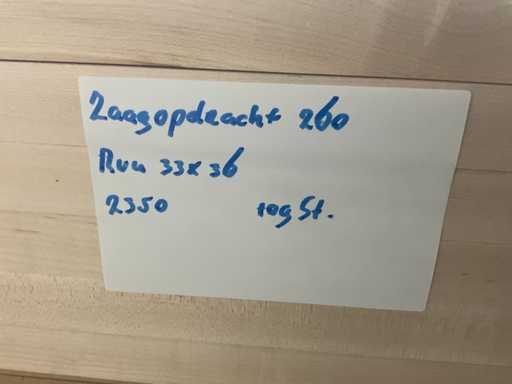 Zaagopdracht 260
Ruw 33x36
2350 109 St.